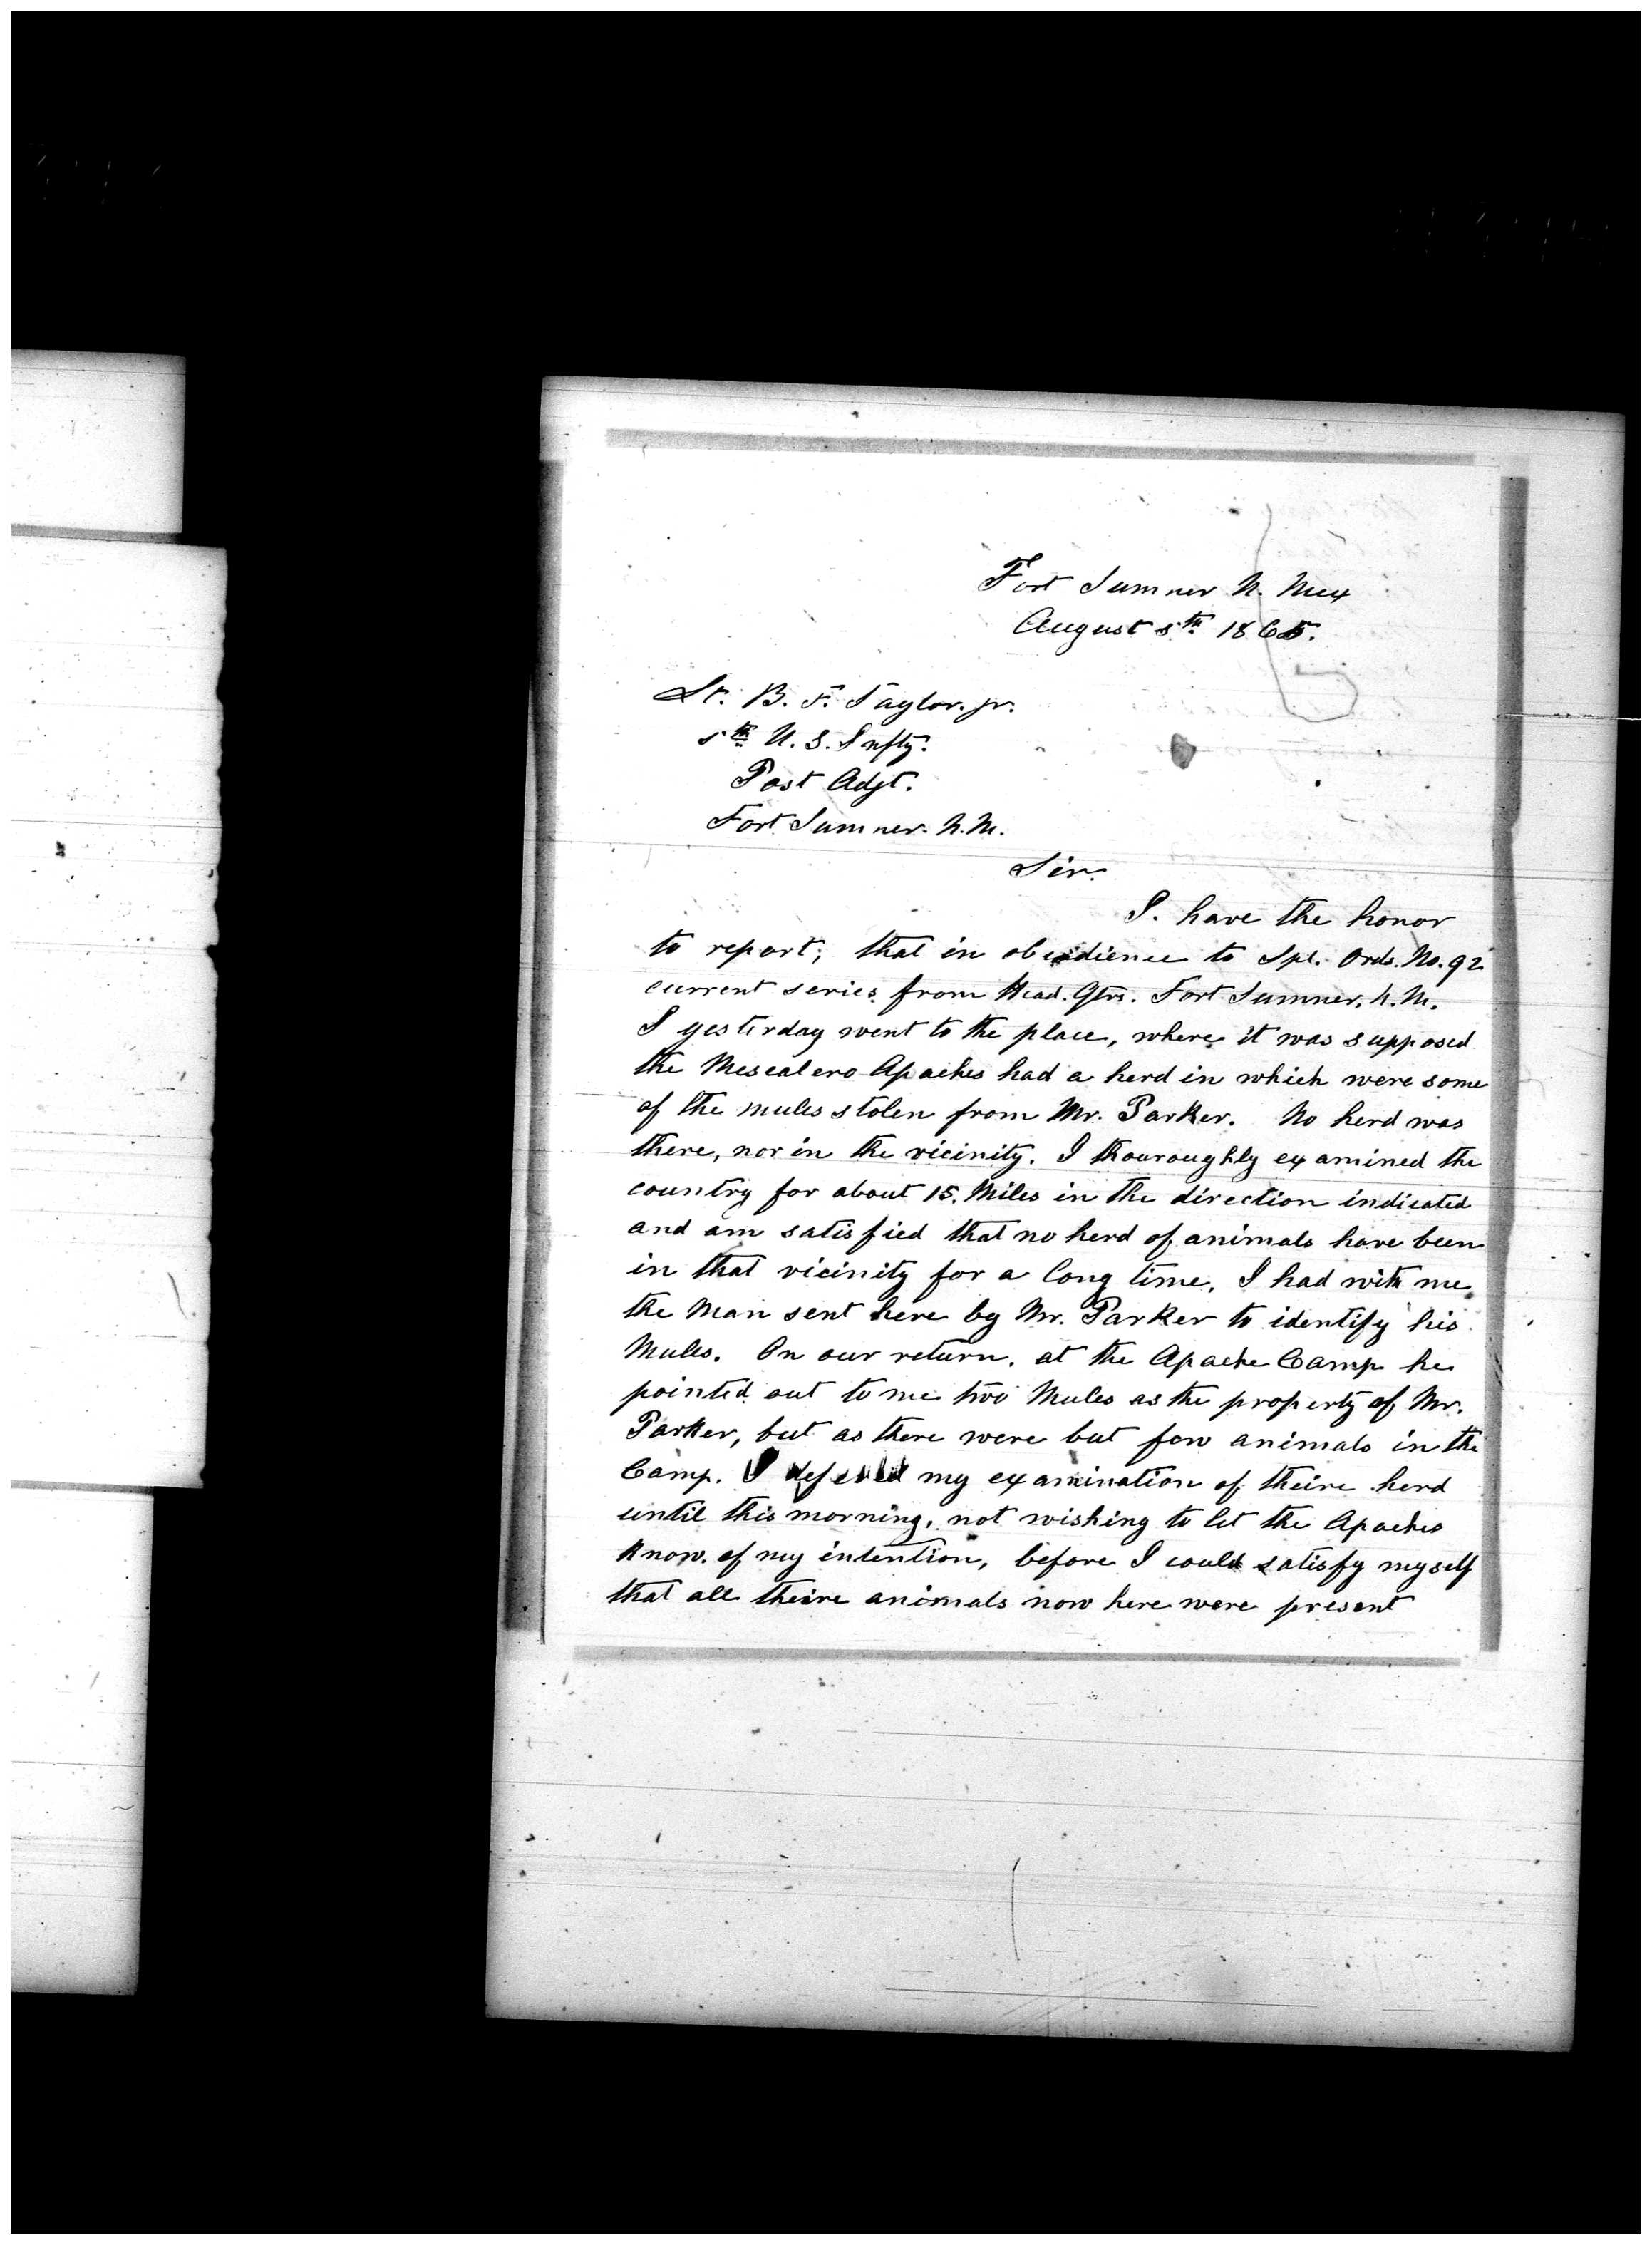 Fort Sumner N. Mex
August 5th 1865.
Lt. B. F. Taylor. jr.
5th U. S. Infty.
Post Adjt.
Fort Sumner. N. M.
Sir.
I. have the honor
to report; that in obeidience to Spl. Ords. No. 92
current series from Head. Qtrs. Fort Sumner. N. M.
I yesterday went to the place, where it was supposed
the Mescalero Apaches had a herd in which were some
of the mules stolen from Mr. Parker. No herd was
there, nor in the vicinity. I thouroughly examined the
country for about 15. Miles in the direction indicated
and am satisfied that no herd of animals have been
in that vicinity for a long time. I had with me
the Man sent here by Mr. Parker to identify his
Mules. On our return, at the Apache Camp he
pointed out to me two Mules as the property of Mr.
Parker, but as there were but few animals in the
Camp. I my examination of theire herd
until this morning, not wishing to let the Apaches
know. of my intention, before I could satisfy myself
that all theire animals now here were present